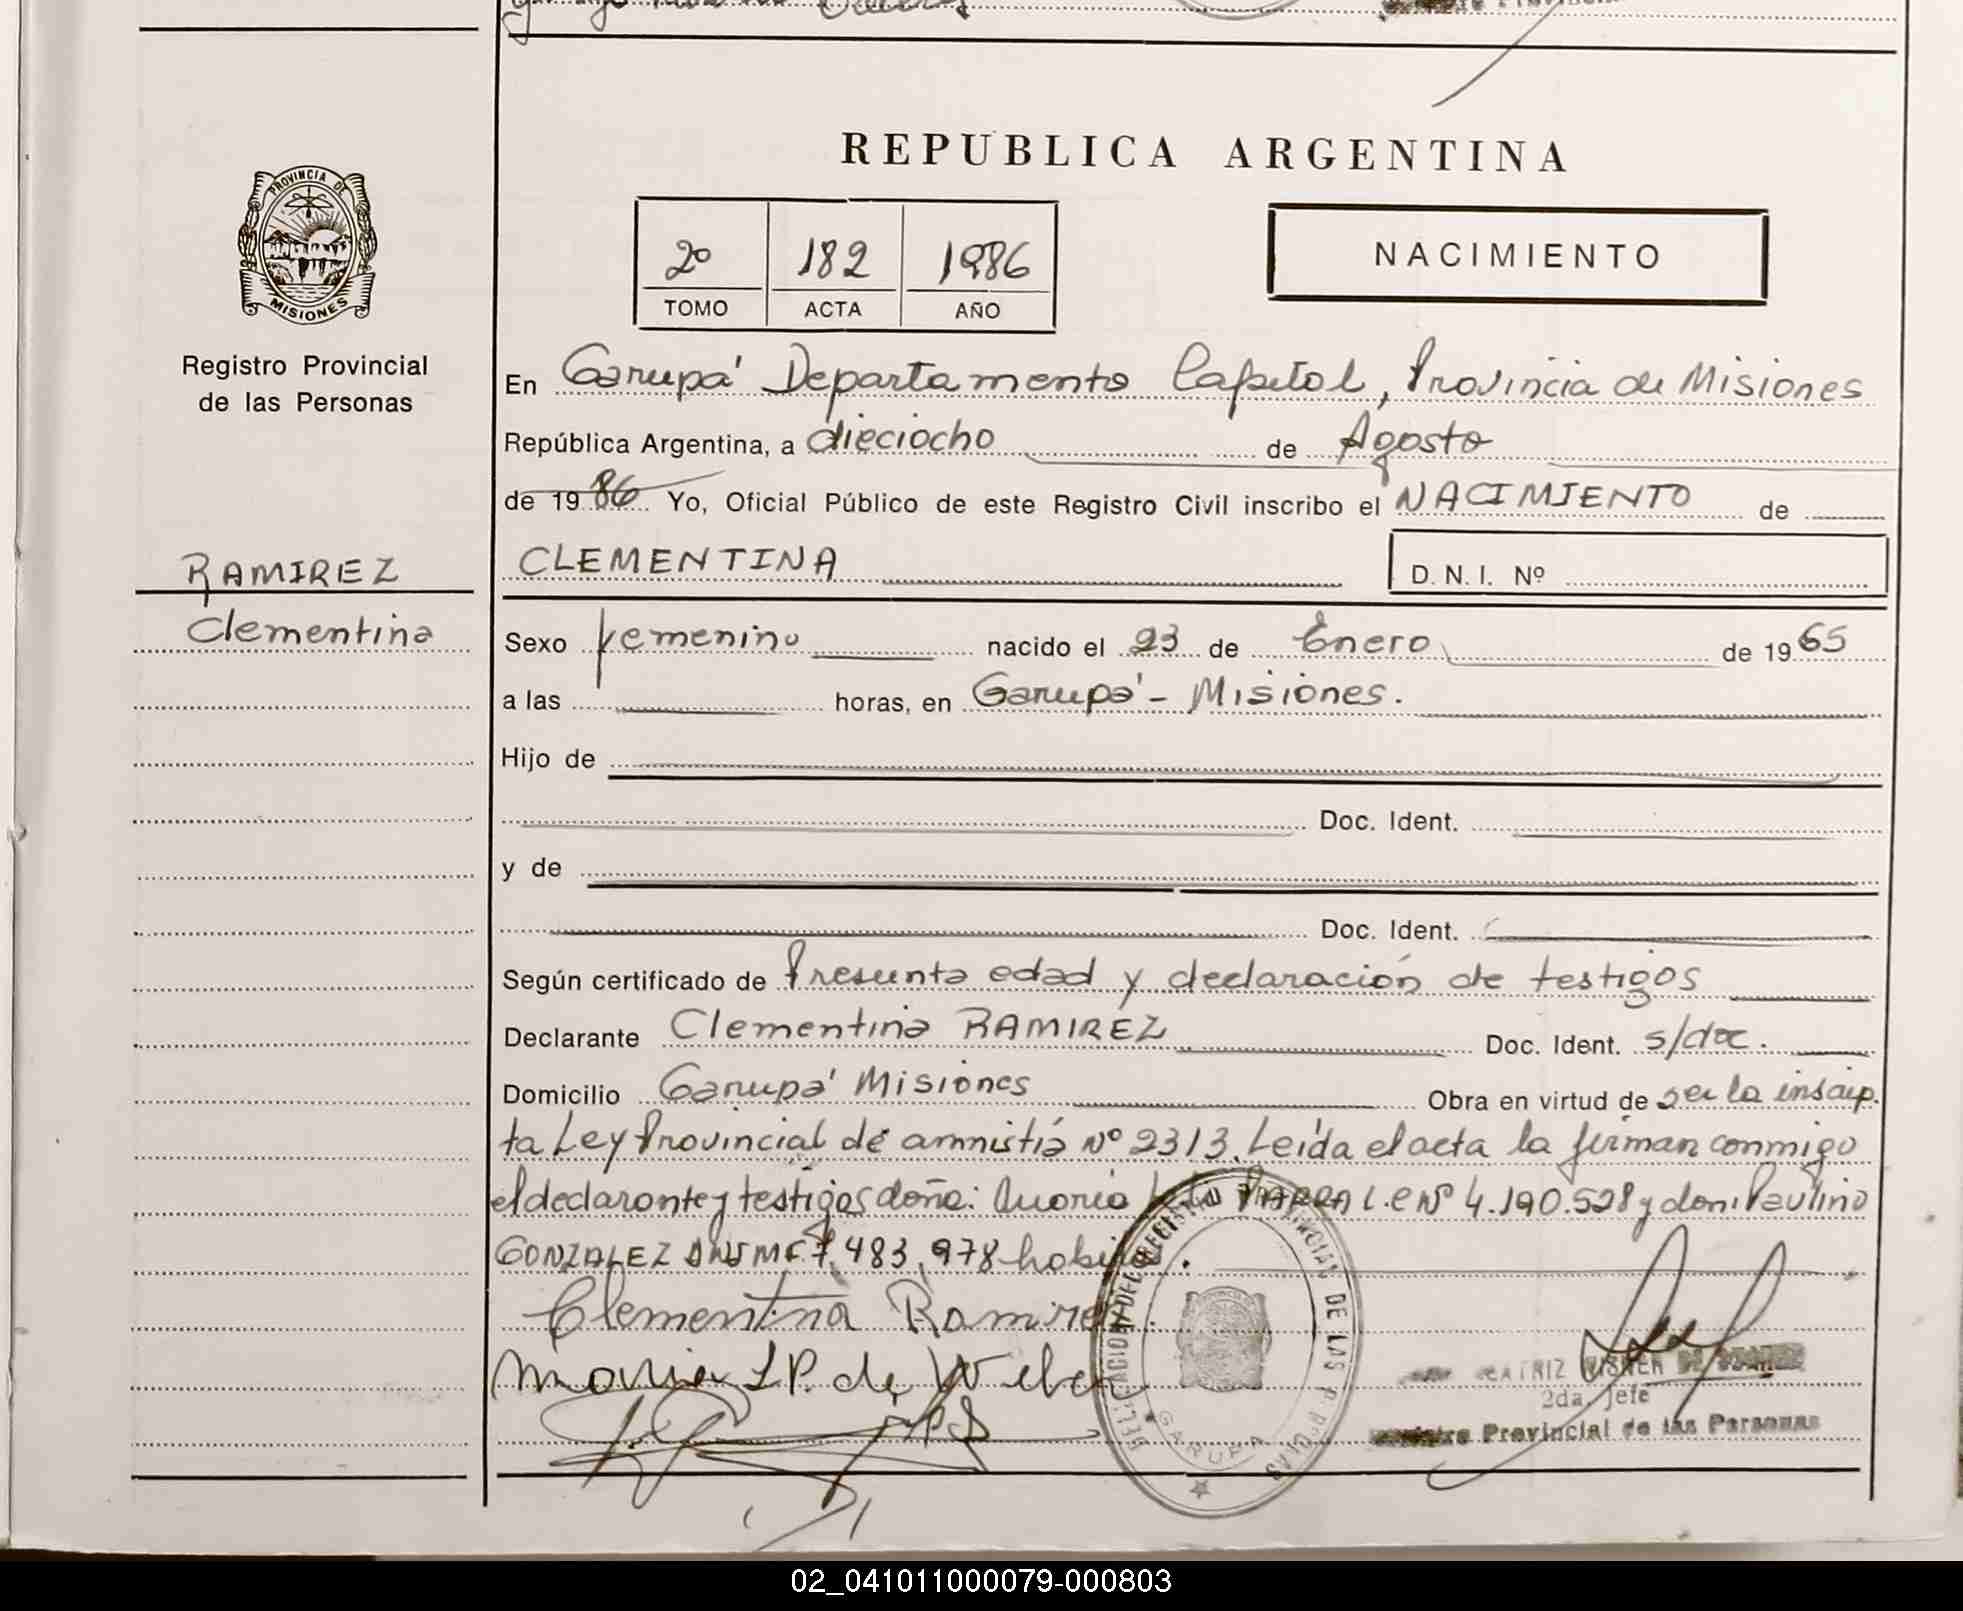 REPUBLICA ARGENTINA
PROVINCIA DE
MISIONES
Registro Provincial
de las Personas
2º 182 1986
TOMO ACTA AÑO
NACIMIENTO
En Garupá Departamento Capital, Provincia de Misiones
República Argentina, a dieciocho de Agosto
de 19 86 Yo, Oficial Público de este Registro Civil inscribo el NACIMIENTO de
RAMIREZ
Clementina
CLEMENTINA D. N. I. Nº
Sexo femenino nacido el 23 de Enero de 19 65
a las horas, en Garupá - Misiones.
Hijo de
Doc. Ident.
y de
Doc. Ident.
Según certificado de Presunta edad y declaración de testigos
Declarante Clementina RAMIREZ Doc. Ident. s/doc.
Domicilio Garupá Misiones Obra en virtud de ser la inscrip.
ta Ley Provincial de amnistía Nº 2313. Leída el acta la firman conmigo
el declarante y testigos doña: María PARRA L.C Nº 4.190.528 y don: Paulino
GONZALEZ 7.483.978
Clementina Ramirez.
Maria L P. de Weber
DELEGACION DEL REGISTRO PROVINCIAL DE LAS
GARUPA
2da. Jefe
Provincial de las Personas
02_041011000079-000803